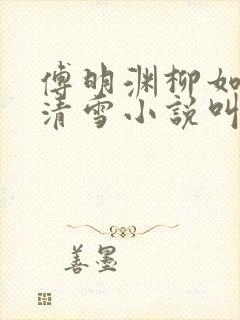 傅明渊柳如
清雪小说叫
善墨